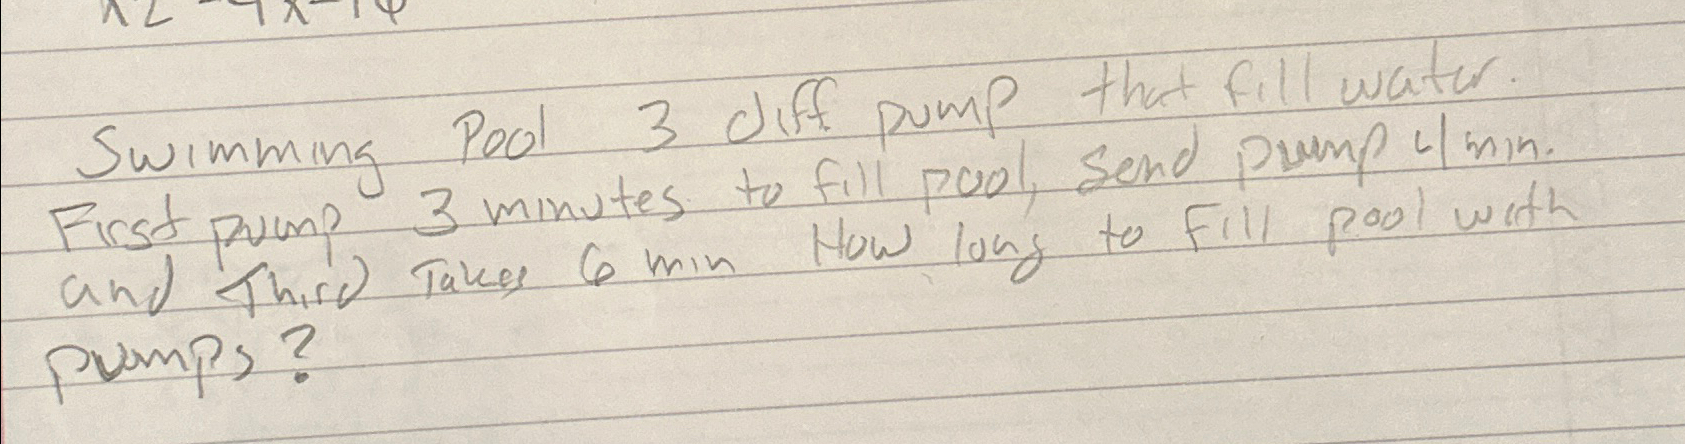 Swimming Pool 3 diff pump that fill water.
First pump 3 minutes to fill pool, Send pump 4 min.
and Third Takes 6 min How long to Fill pool with
pumps?